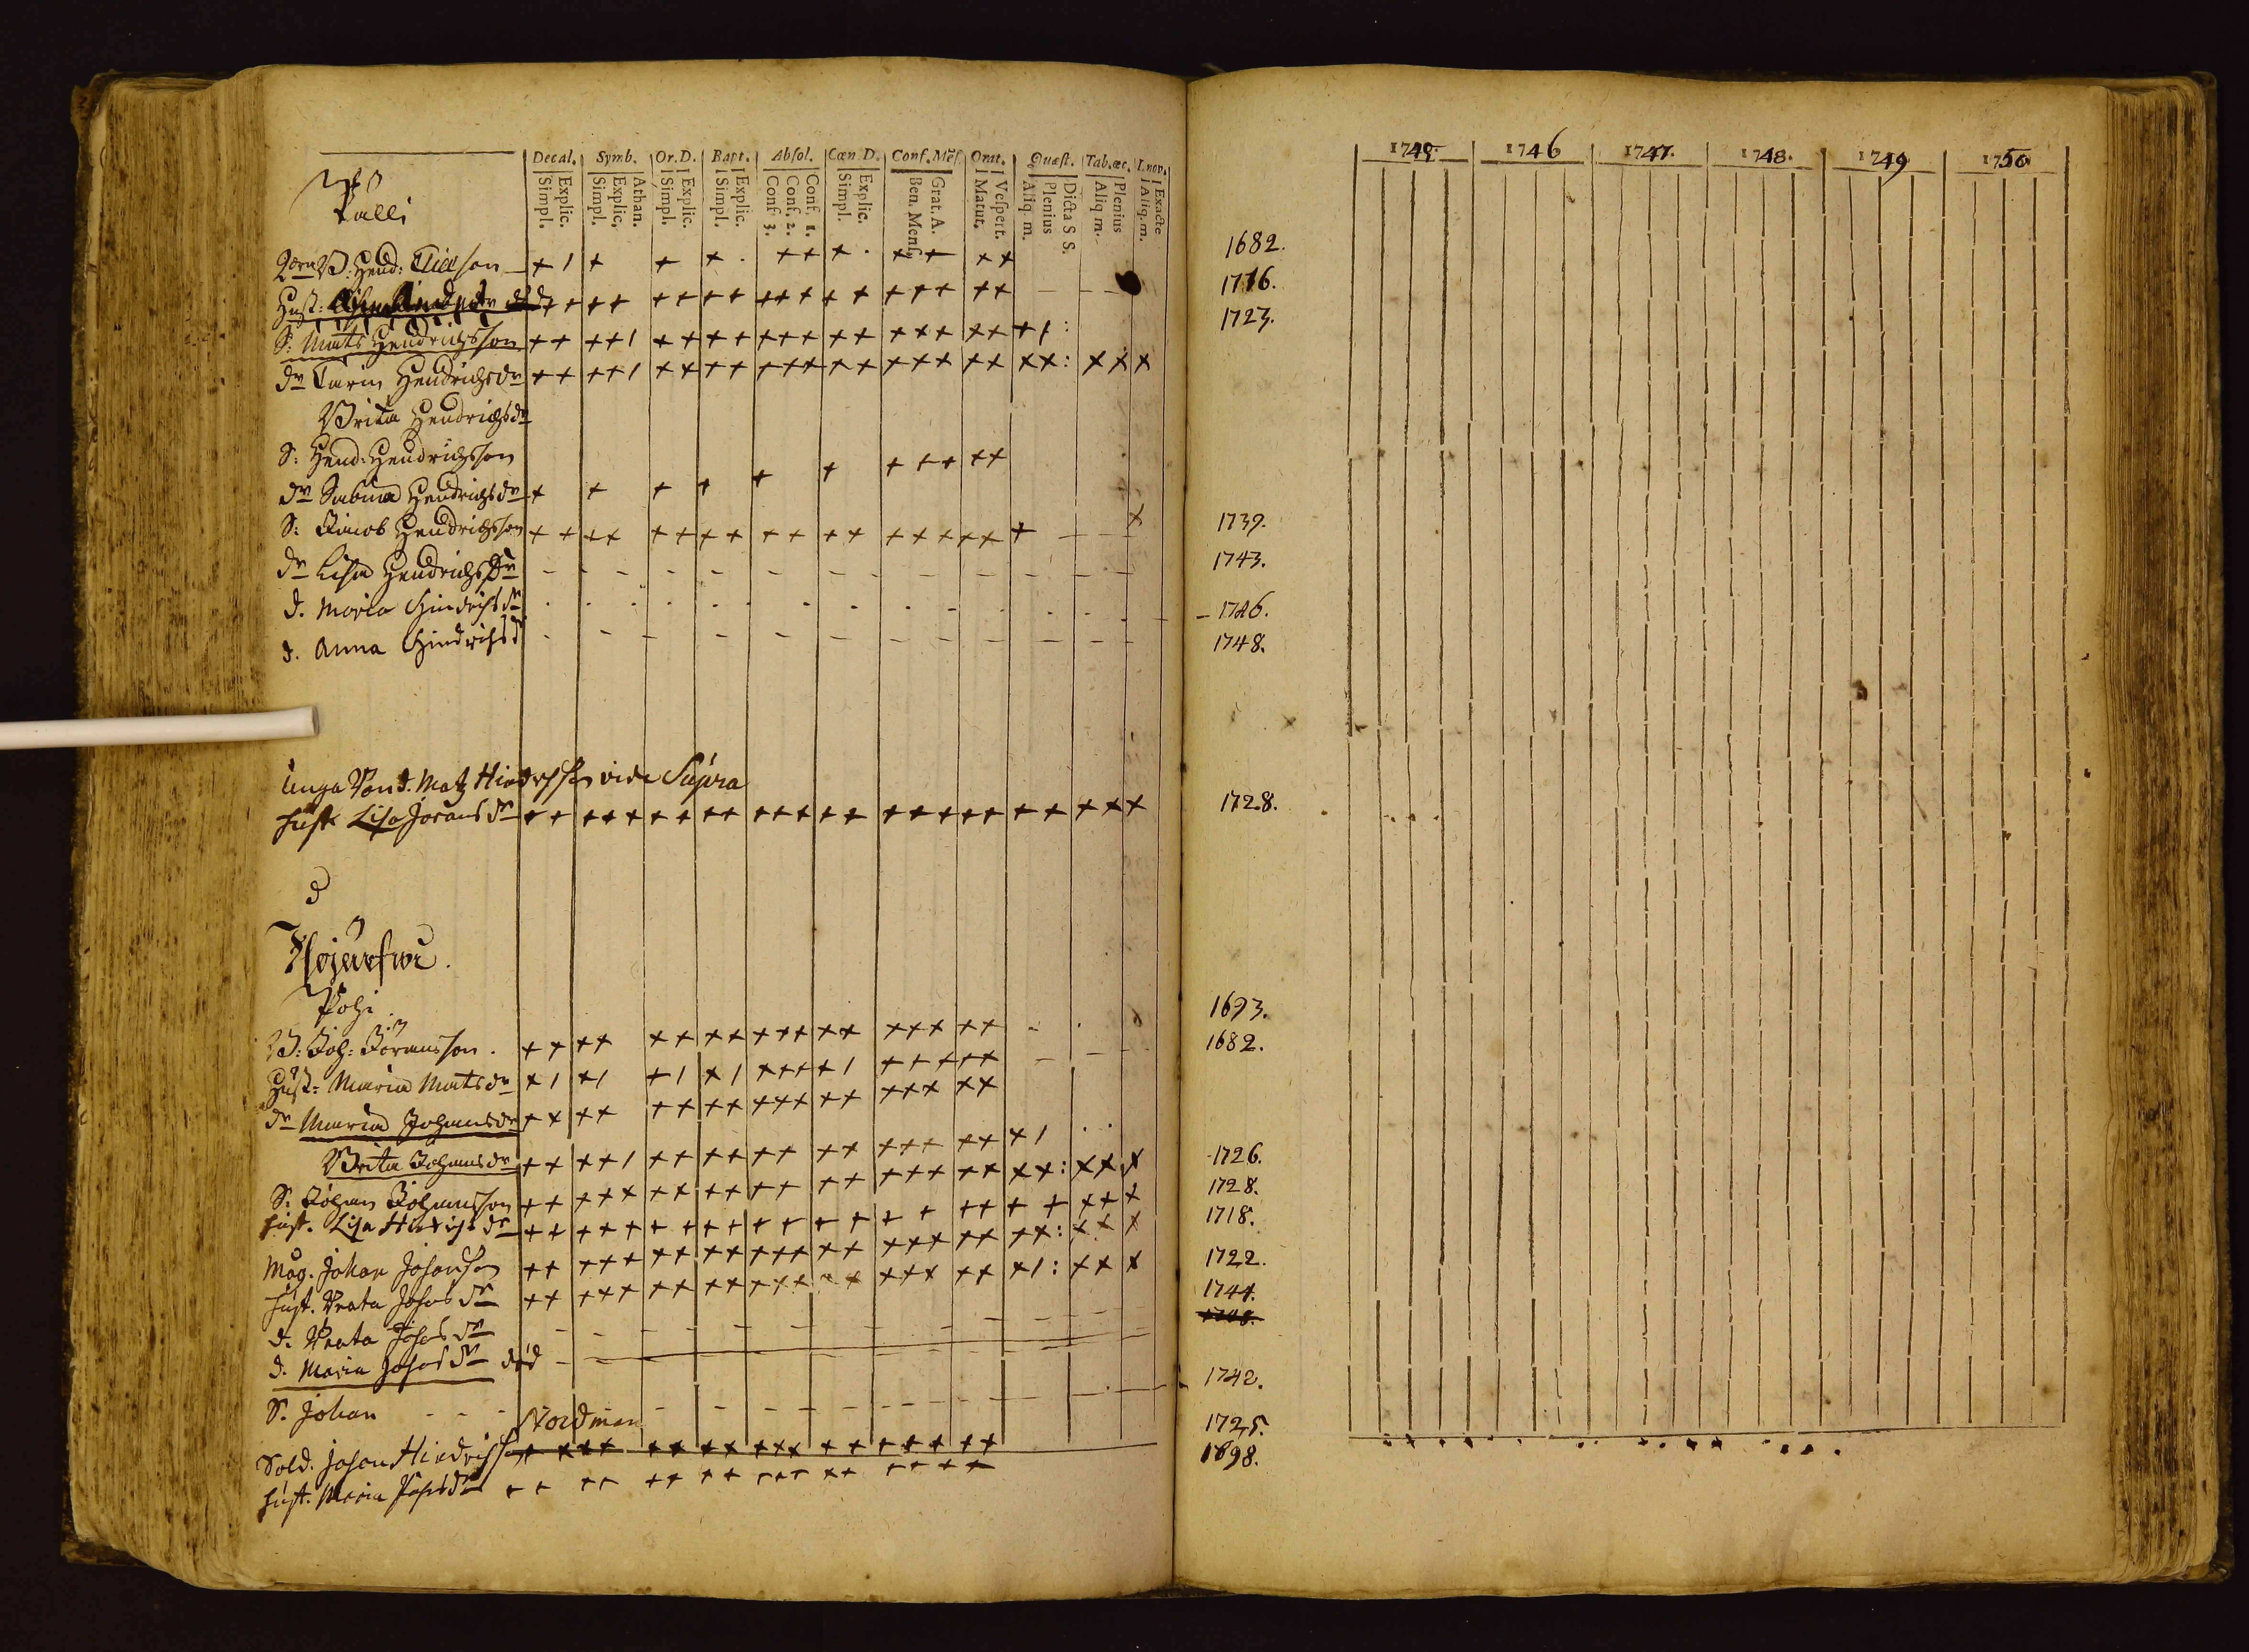 Decal. Symb. Or. D. Bapt. Absol. Cœn D. Conf. Mēs. Orat. Quæst. Tab. œc. I. nov.
Simpl. Explic. Simpl. Explic. Athan. Simpl. Explic. Simpl. Explic. Conf 3. Conf. 2. Conf. 1. Simpl. Explic. Ben. Mens. Grat. A. Matut. Vespert. Aliq m. Plenius Dicta S S. Aliq m. Plenius Aliq. m. Exacte
Palli
B: Hend: Elieson
Hust:
S: Mats Hendrichsson
dr Carin Hendrichsdr
Brita Hendrichsdr
S: Hend: Hendrichsson
dr Sabina Hendrichsdr
S: Jacob Hendrichsson
dr Lisa Hendrichsdr
d. Maria Hindrichsdr
d. Anna Hindrichsd
unga Bond. Matz Hindrichsson vide Supra
hust Lisa Jöransdr
Pohi
B: Joh: Jöransson
Hust: Maria Matsdr
dr Maria Johansdr
Brita Johansdr
S: Johan Johansson
hust. Lisa Hindrichsdr
Måg. Johan Johansson
hust. Beata Johansdr
d. Beata Johansdr
d. Maria Johansdr död
S. Johan
Nordman
Sold. Johan Hindrichss
hust. Maria
1745. 1746 1747. 1748. 1749 1750
1682.
1716.
1723.
1739.
1743.
1746.
1748.
1728.
1693.
1682.
1726.
1728.
1718.
1722.
1744.
1742.
1725.
1698.